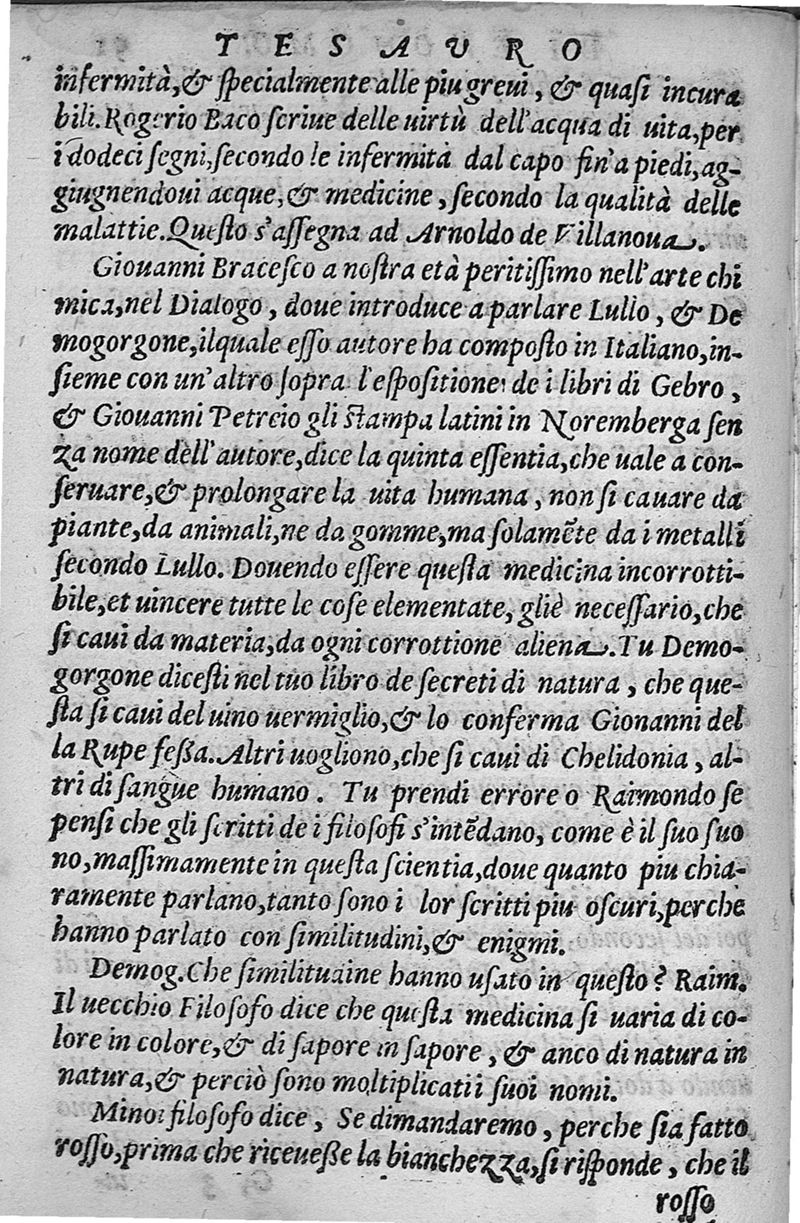 TESAURO
infermità,& specialmente alle piu greui, & quasi incura
bili. Rogerio Baco scriue delle uirtù dell'acqua di uita,per
i dodeci segni,secondo le infermità dal capo fin'a piedi,ag-
giugnendoui acque,& medicine, secondo la qualità delle
malattie.Questo s'assegna ad Arnoldo de Villanoua.
Giouanni Bracesco a nostra età peritissimo nell'arte chi
mica,nel Dialogo, doue introduce a parlare Lullo, & De
mogorgone,ilquale esso autore ha composto in Italiano,in-
sieme con un'altro sopra l'espositione de i libri di Gebro,
& Giouanni Petreio gli stampa latini in Noremberga sen
za nome dell'autore,dice la quinta essentia,che uale a con-
seruare,& prolongare la uita humana, non si cauare da
piante,da animali,ne da gomme,ma solamẽte da i metalli
secondo Lullo. Douendo essere questa medicina incorrotti-
bile,et uincere tutte le cose elementate, gliè necessario,che
si caui da materia,da ogni corrottione aliena.Tu Demo-
gorgone dicesti nel tuo libro de secreti di natura, che que-
sta si caui del uino uermiglio,& lo conferma Gionanni del
la Rupe fessa.Altri uogliono,che si caui di Chelidonia, al-
tri di sangue humano. Tu prendi errore o Raimondo se
pensi che gli scritti de i filosofi s'intẽdano, come è il suo suo
no,massimamente in questa scientia,doue quanto piu chia-
ramente parlano,tanto sono i lor scritti piu oscuri,perche
hanno parlato con similitudini,& enigmi.
Demog.Che similitudine hanno usato in questo? Raim.
Il uecchio Filosofo dice che questa medicina si uaria di co-
lore in colore,& di sapore in sapore, & anco di natura in
natura,& perciò sono moltiplicati i suoi nomi.
Minoi filosofo dice, Se dimandaremo, perche sia fatto
rosso,prima che riceuesse la bianchezza,si risponde, che il
rosso